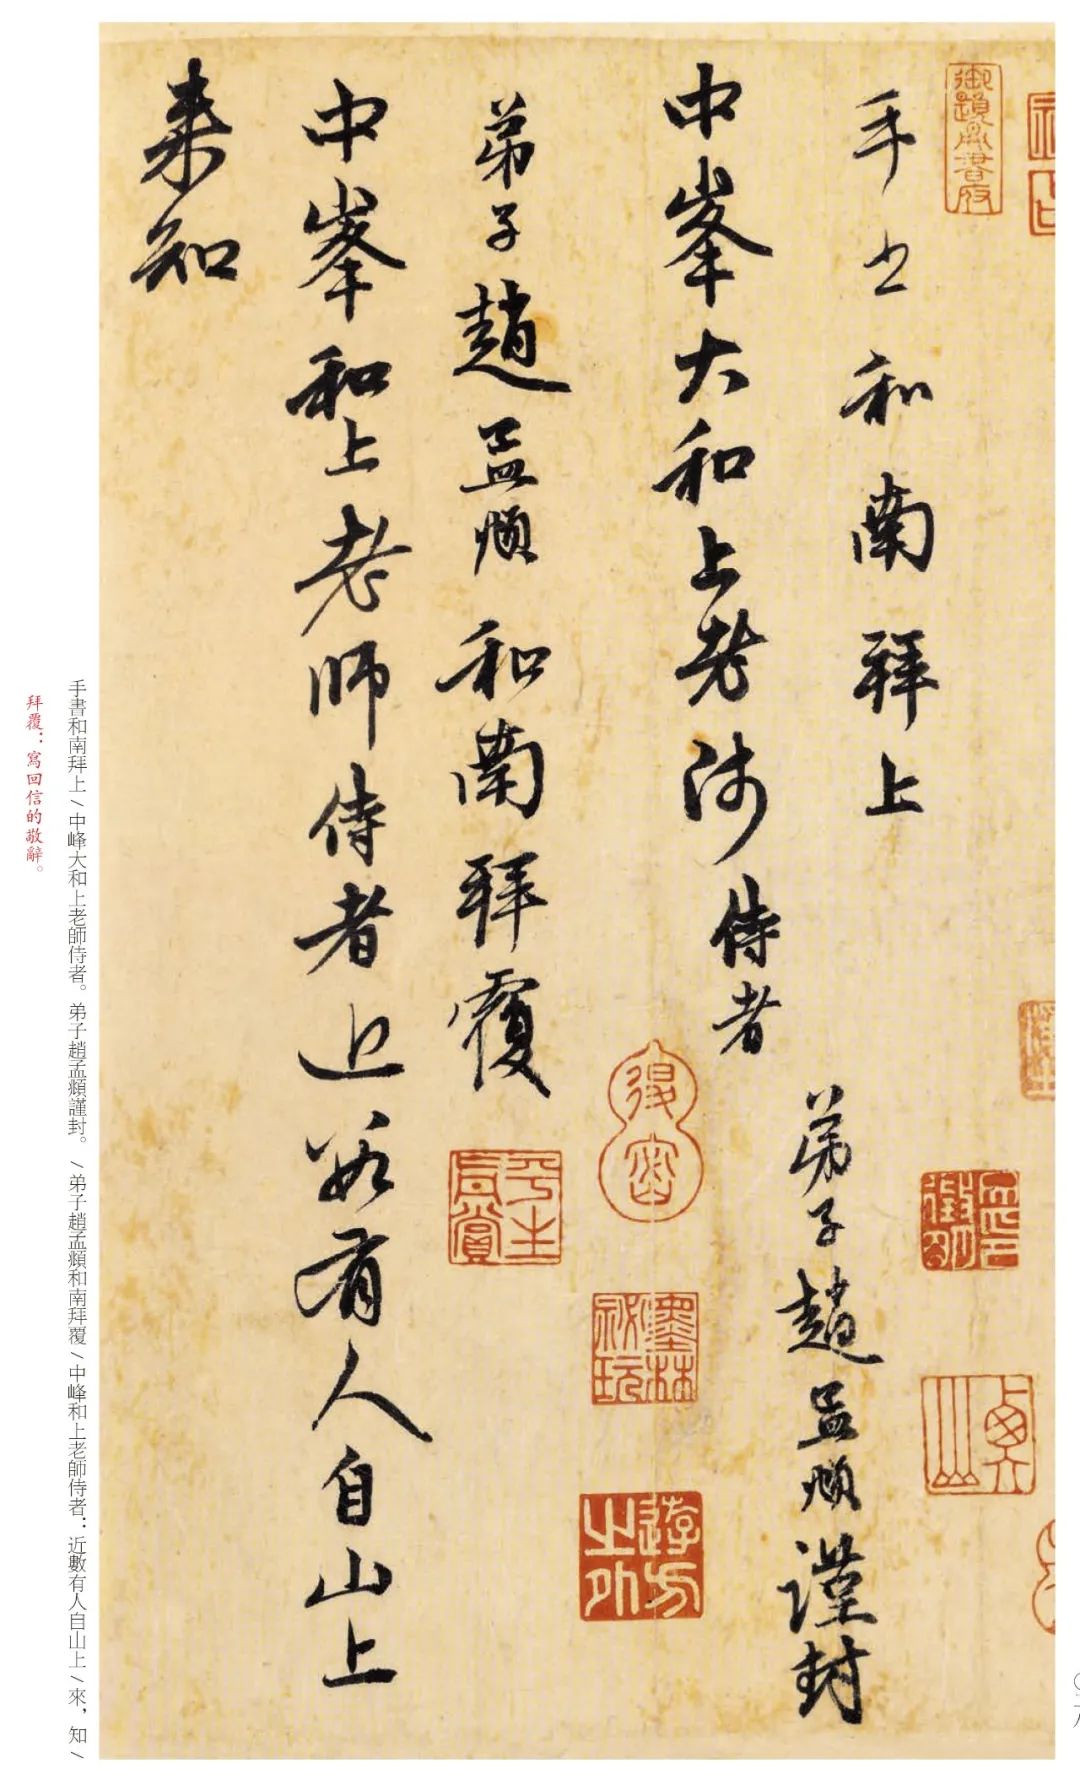 手書和南拜上
中峯大和上老師侍者
弟子趙孟頫謹封
弟子趙孟頫和南拜覆
中峯和上老師侍者近數有人自山上
來知
手書和南拜上/中峰大和上老師侍者。弟子趙孟頫謹封。/弟子趙孟頫和南拜覆/中峰和上老師侍者：近數有人自山上/來，知/
拜覆：寫回信的敬辭。
墨林祕玩
平生真賞